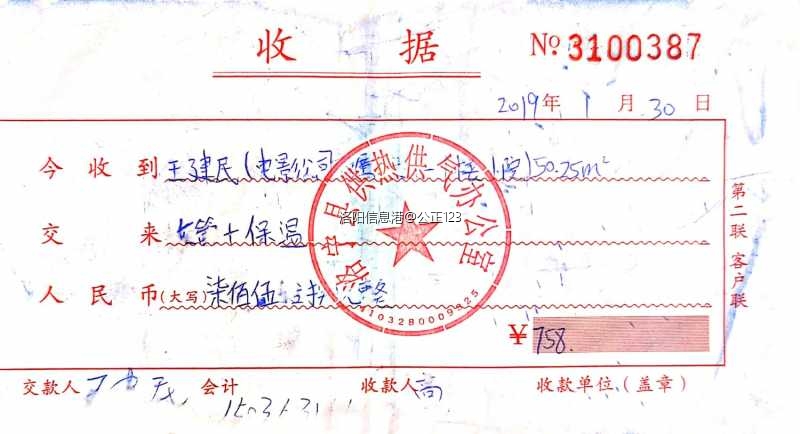 收 据 № 3100387
2019年 1 月 30 日
今 收 到 王建民(电影公司 50.25m²
交 来 管+保温
人 民 币(大写)柒佰伍 整
¥ 758.
交款人 会计 收款人 高 收款单位(盖章)
第二联 客户联
洛宁县供热供气办公室
4103280009325
洛阳信息港@公正123